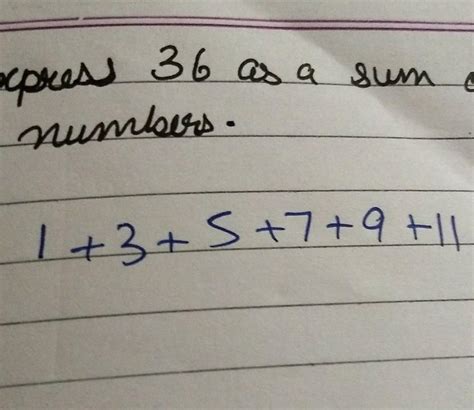 express 36 as a sum
numbers.
1 + 3 + 5 + 7 + 9 + 11